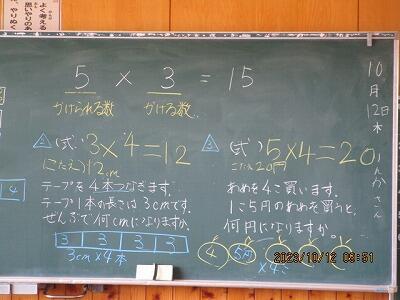 よく考える
思いやりのあ
やりぬく
5 × 3 = 15
かけられる数 かける数
10月12日木
さんすう
2 (式) 3×4=12
(こたえ) 12cm
テープを4本つなぎます。
テープ1本の長さは3cmです。
ぜんぶで何cmになりますか。
3 3 3 3
3cm×4本
3 (式) 5×4=20
こたえ20円
あめを4こ買います。
1こ5円のあめを買うと、
何円になりますか。
4 5円
×4こ
4
2023/10/12 09:51